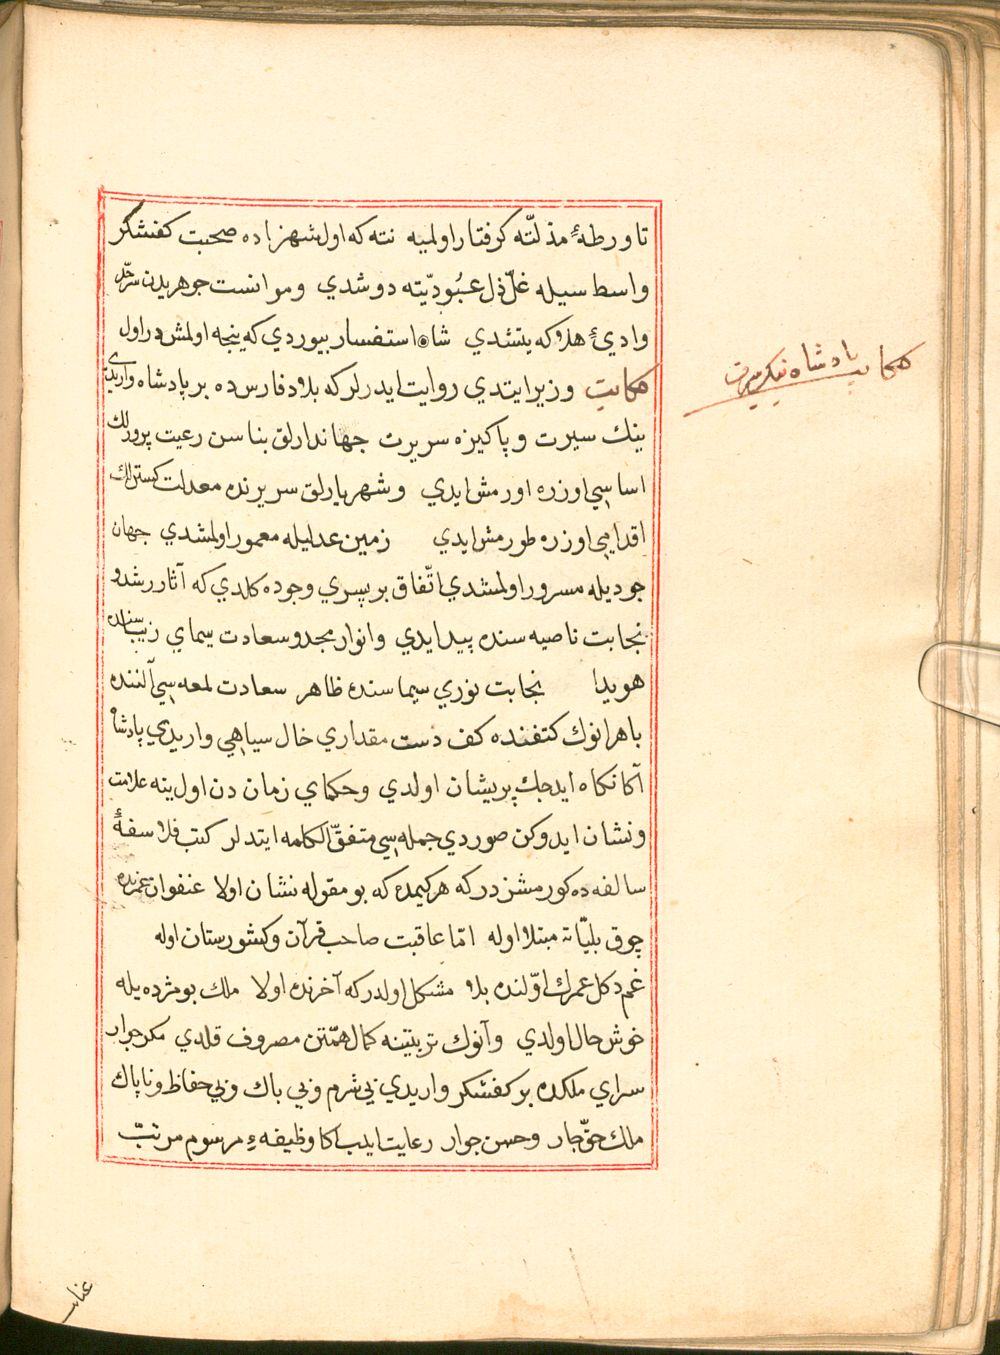 تا ورطهٔ مذلّته كرفتار اولميه نته كه اول شهزاده صحبت كفشكر
واسطه سيله غلّ ذل عبُوديّته دوشدي وموانست جوهريدن سرحدّ
وادئ هلاكه يتشدي شاه استفسار بيوردي كه نيجه اولمشدر اول
حكايت وزير ايتدي روايت ايدرلر كه بلاد فارس ده بر پادشاه واريدي
نيك سيرت و پاكيزه سريرت جهاندارلق بناسن رعيت پرورلك
اساسي اوزره اورمش ايدي وشهريارلق سريرنده معدلت كسترلك
اقدامي اوزره طورمش ايدي زمين عدليله معمور اولمشدي جهان
جوديله مسرور اولمشدي اتّفاق بر پسري وجوده كلدي كه آثار رشد و
نجابت ناصيه سنده پيدا ايدي وانوار مجد و سعادت سيماي زيباسنده
هويدا نجابت نوري سيماسنده ظاهر سعادت لمعه سي آلننده
باهر انوك كتفنده كف دست مقداري خال سياهي واريدي پادشاه
آكا نكاه ايدجك پريشان اولدي وحكماي زمان دن اولينه علامت
ونشان ايدوكن صوردي جمله سي متفقّ الكلمه ايتدلر كتب فلاسفهٔ
سالفه ده كورمشزدر كه هر كيمده كه بو مقوله نشان اولا عنفوان عمرنده
چوق بليّاته مبتلا اوله امّا عاقبت صاحب قرآن وكشورستان اوله
غم دكل عمرك اوّلنده بلا مشكل اولدر كه آخرنده اولا ملك بو مژده يله
خوش حال اولدي وآنوك تربيتينه كمال همّتن مصروف قلدي مكر جوار
سراي ملكده بر كفشكر واريدي بي شرم وبي باك وبي حفاظ وناپاك
ملك حقّ جار وحسن جوار رعايت ايدب اكا وظيفهء مرسوم مرتبّ
حكايت پادشاه نيكو سيرت